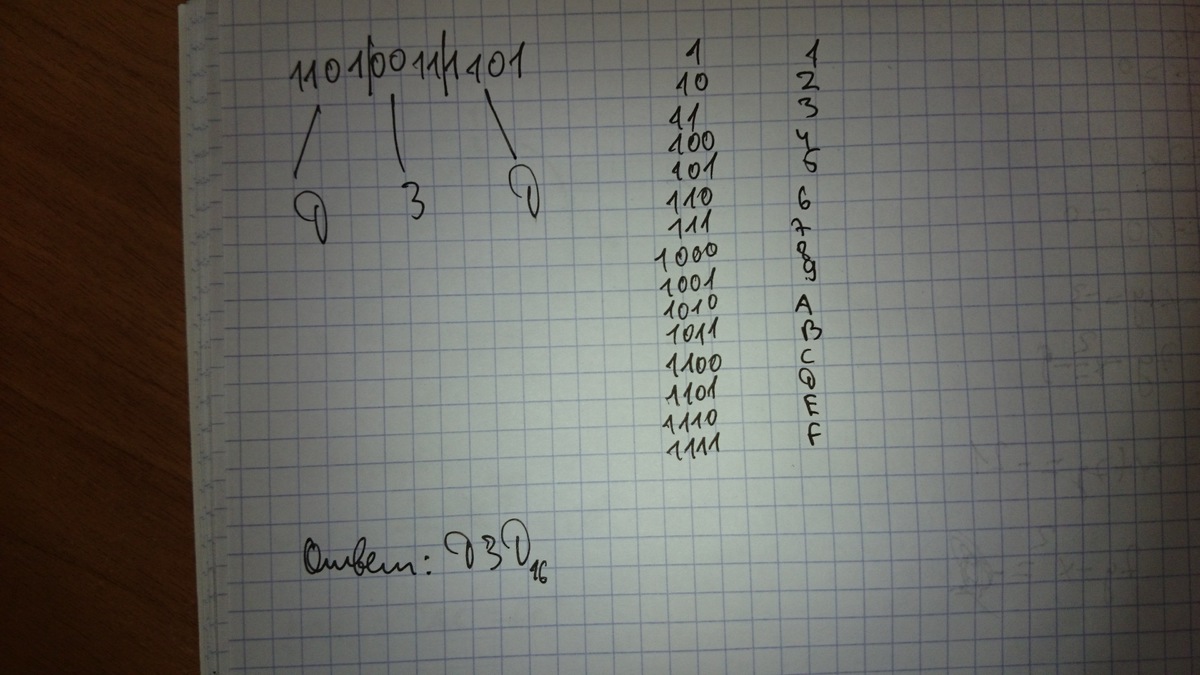 1101|0011|1101
D 3 D
1 1
10 2
11 3
100 4
101 5
110 6
111 7
1000 8
1001 9
1010 A
1011 B
1100 C
1101 D
1110 E
1111 F
Ответ: D3D16